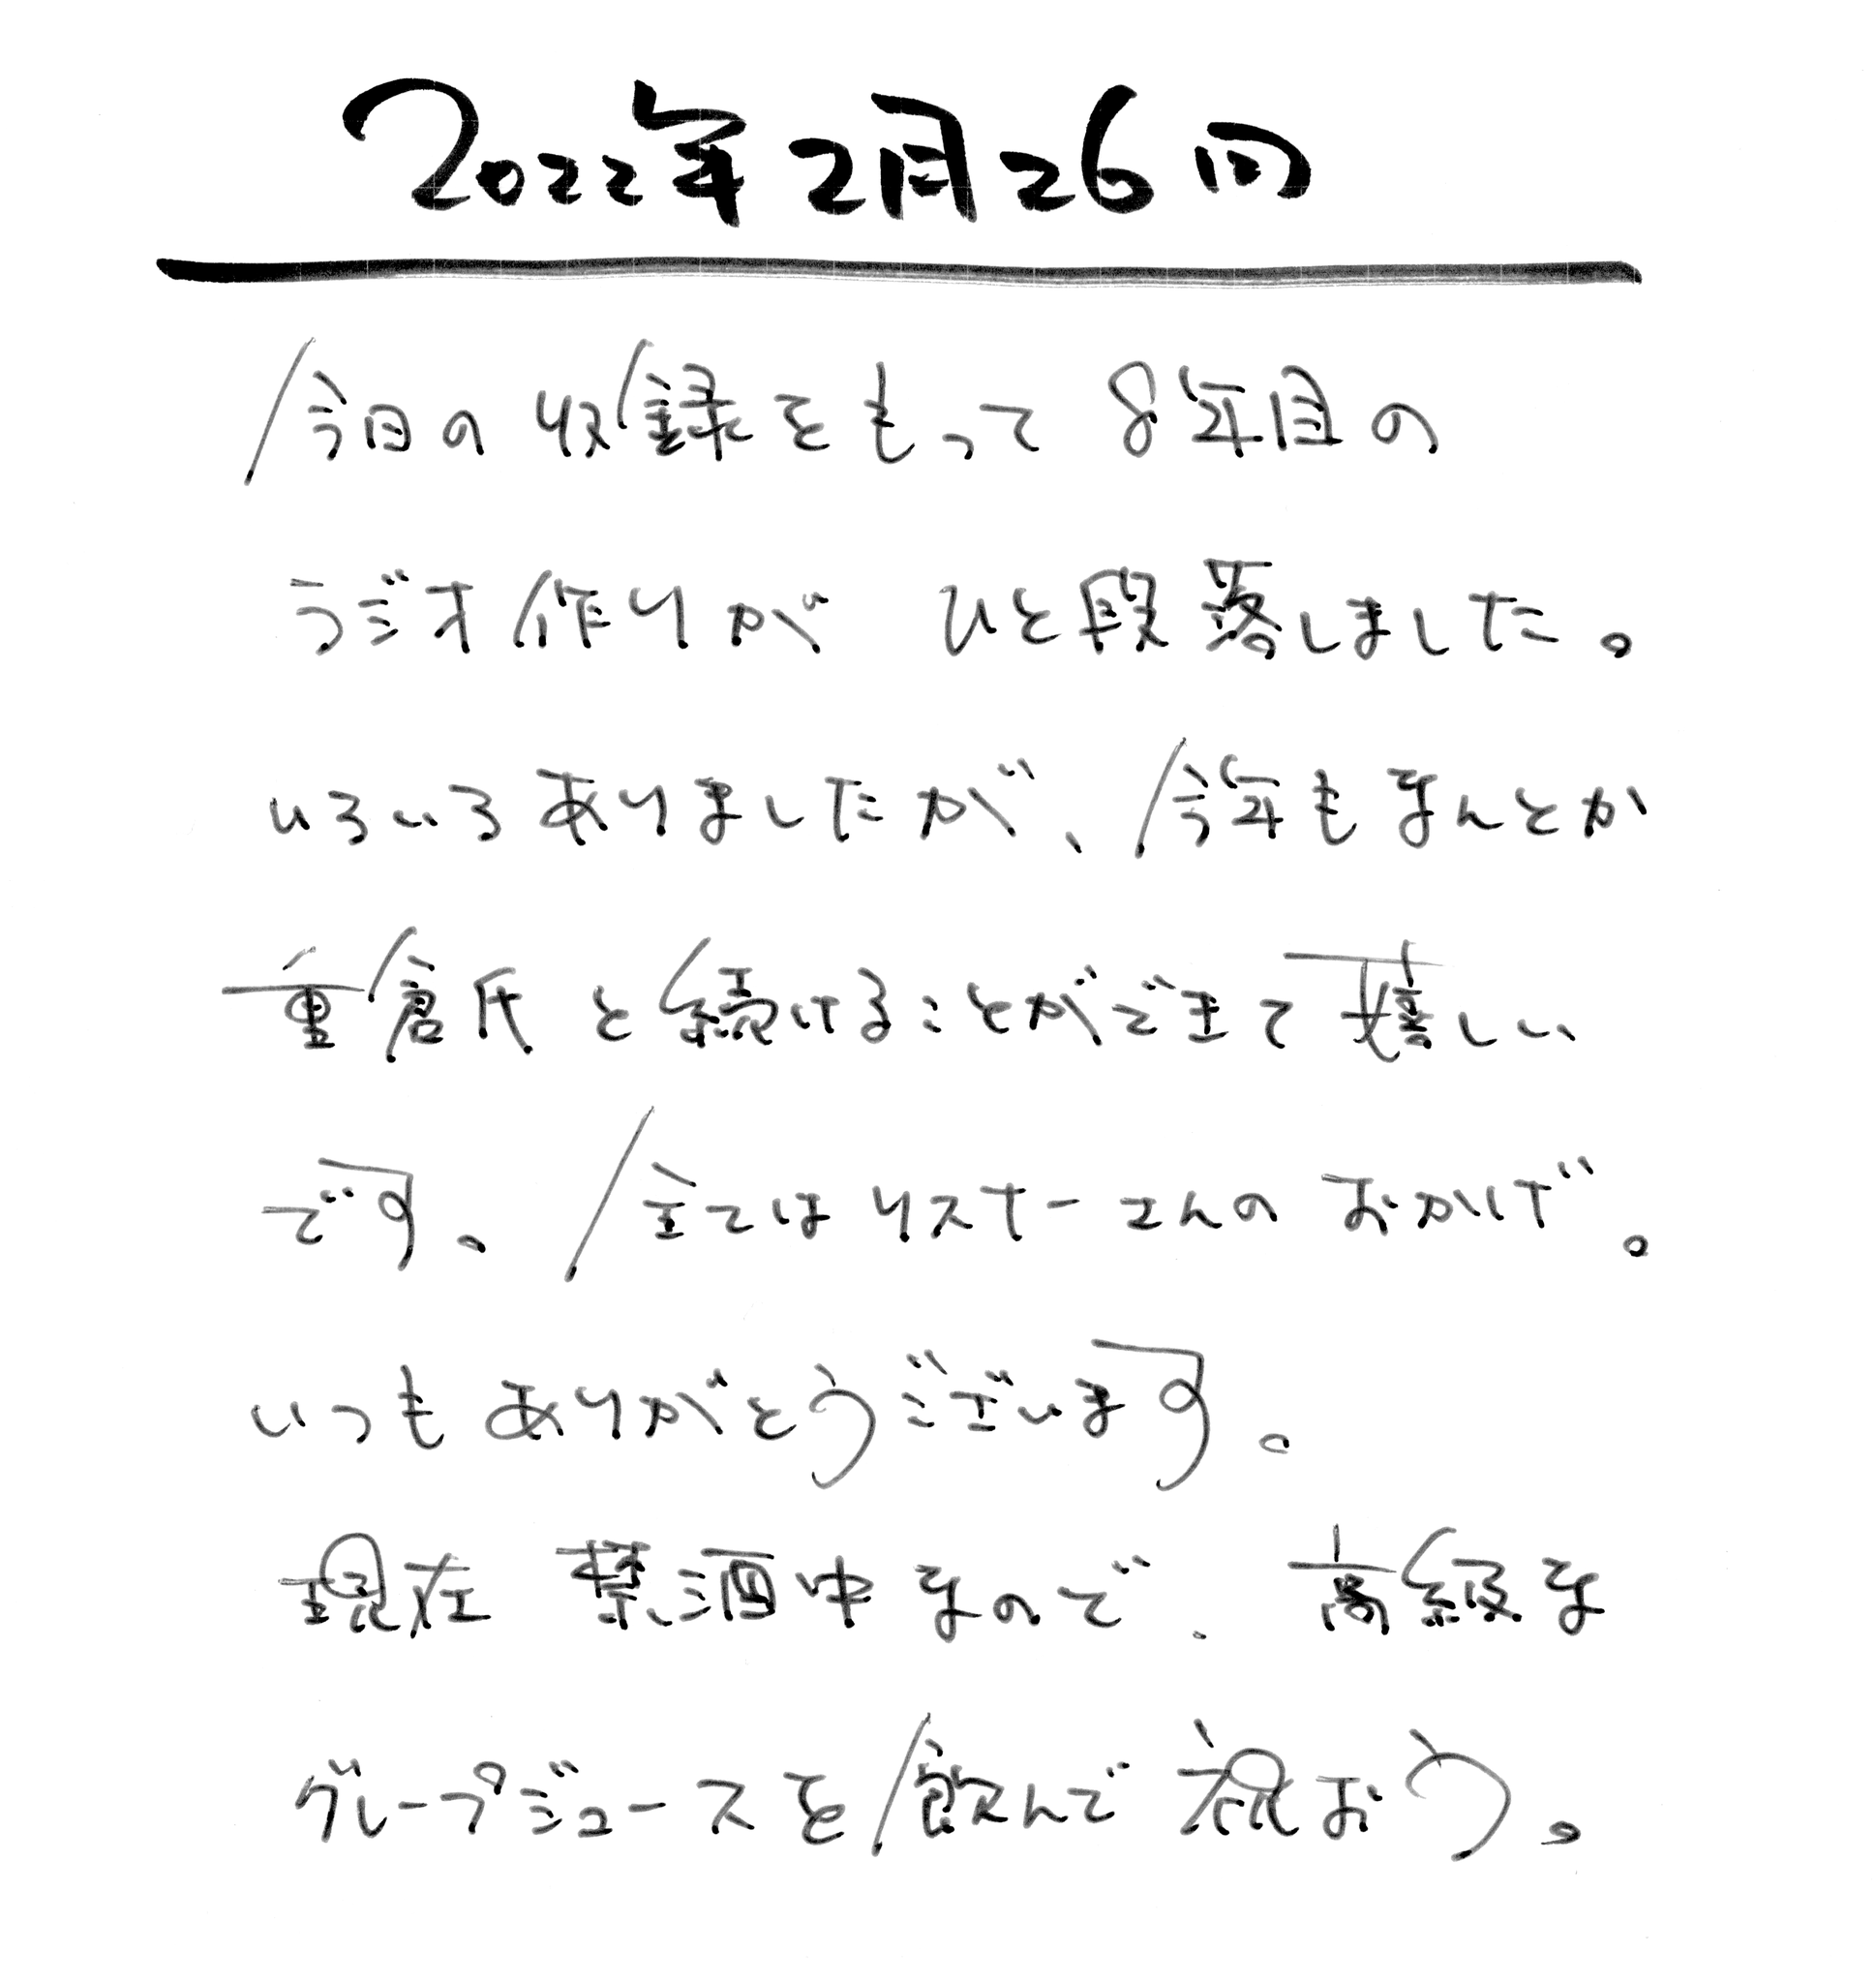 2022年2月26日
今日の収録をもって8年目の
ラジオ作りが ひと段落しました。
いろいろありましたが、今年もなんとか
重倉氏と続けることができて嬉しい
です。全てはリスナーさんのおかげ。
いつもありがとうございます。
現在 禁酒中なので、高級な
グレープジュースを飲んで祝おう。